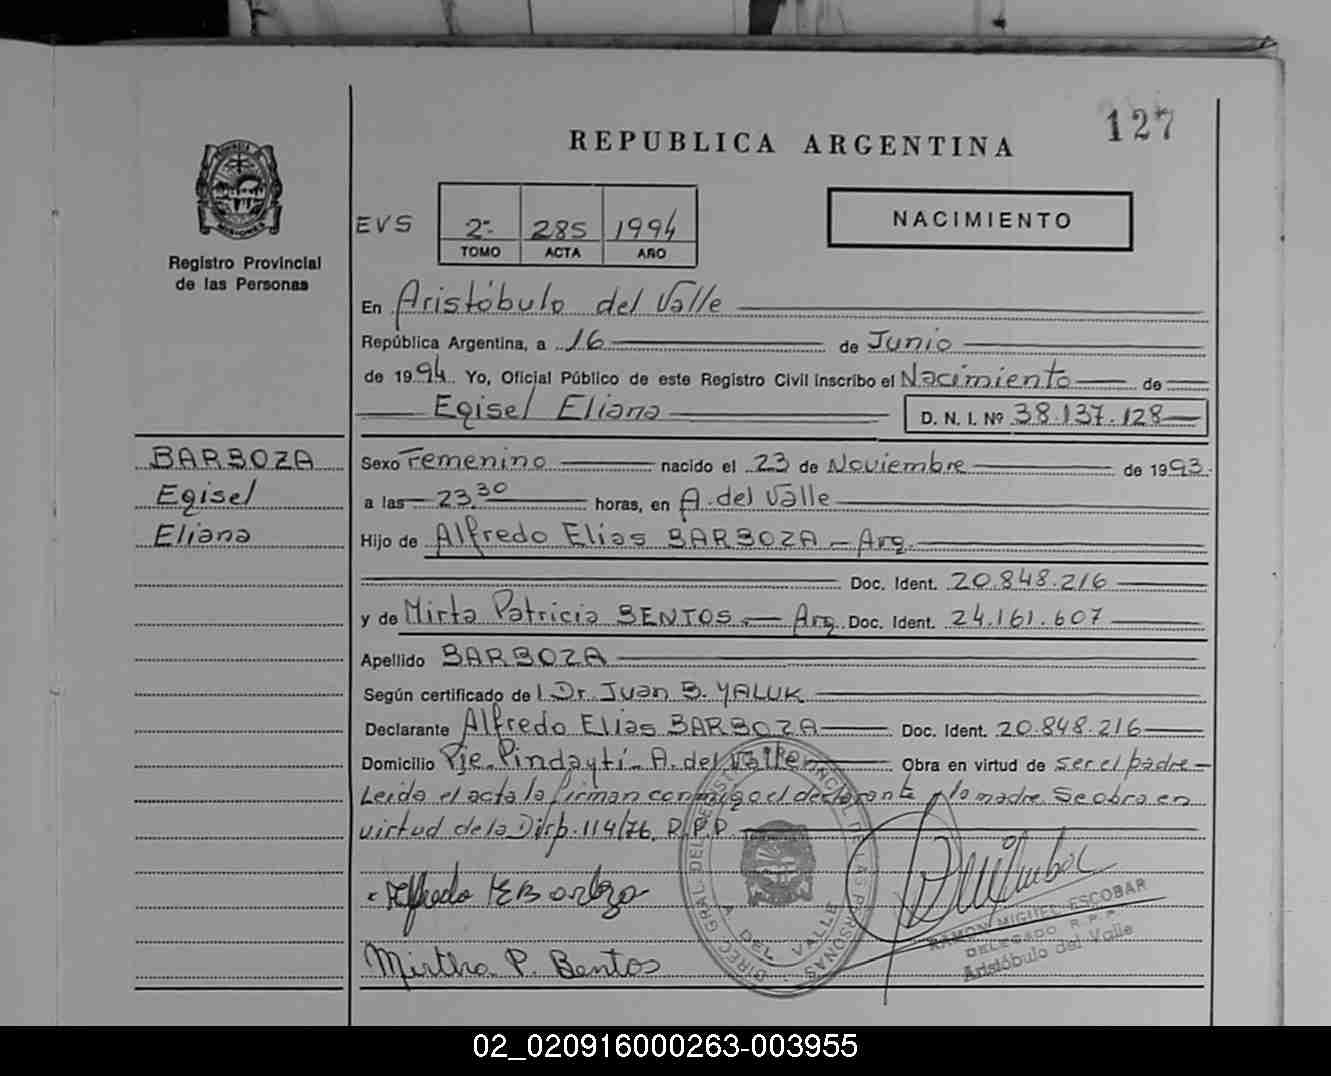 127
REPUBLICA ARGENTINA
EVS
2º
285
1994
TOMO
ACTA
AÑO
NACIMIENTO
Registro Provincial
de las Personas
En Aristóbulo del Valle
República Argentina, a 16 de Junio
de 1994 Yo, Oficial Público de este Registro Civil inscribo el Nacimiento de
Egisel Eliana
D. N. I. Nº 38.137.128
BARBOZA
Egisel
Eliana
Sexo Femenino nacido el 23 de Noviembre de 1993
a las 23,30 horas, en A. del Valle
Hijo de Alfredo Elias BARBOZA - Arg.
Doc. Ident. 20.848.216
y de Mirta Patricia BENTOS. - Arg. Doc. Ident. 24.161.607
Apellido BARBOZA
Según certificado de l Dr. Juan B. YALUK
Declarante Alfredo Elias BARBOZA Doc. Ident. 20.848.216
Domicilio Pje. Pindaytí - A. del Valle Obra en virtud de ser el padre -
Leída el acta la firman conmigo el declarante y la madre. Se obra en
virtud de la Disp. 114/76, R.P.P.
Mirtha P. Bentos
DIREC. GRAL. DEL REGISTRO PROVINCIAL DE LAS PERSONAS
A. DEL VALLE
RAMON MIGUEL ESCOBAR
DELEGADO R.P.P.
Aristóbulo del Valle
02_020916000263-003955